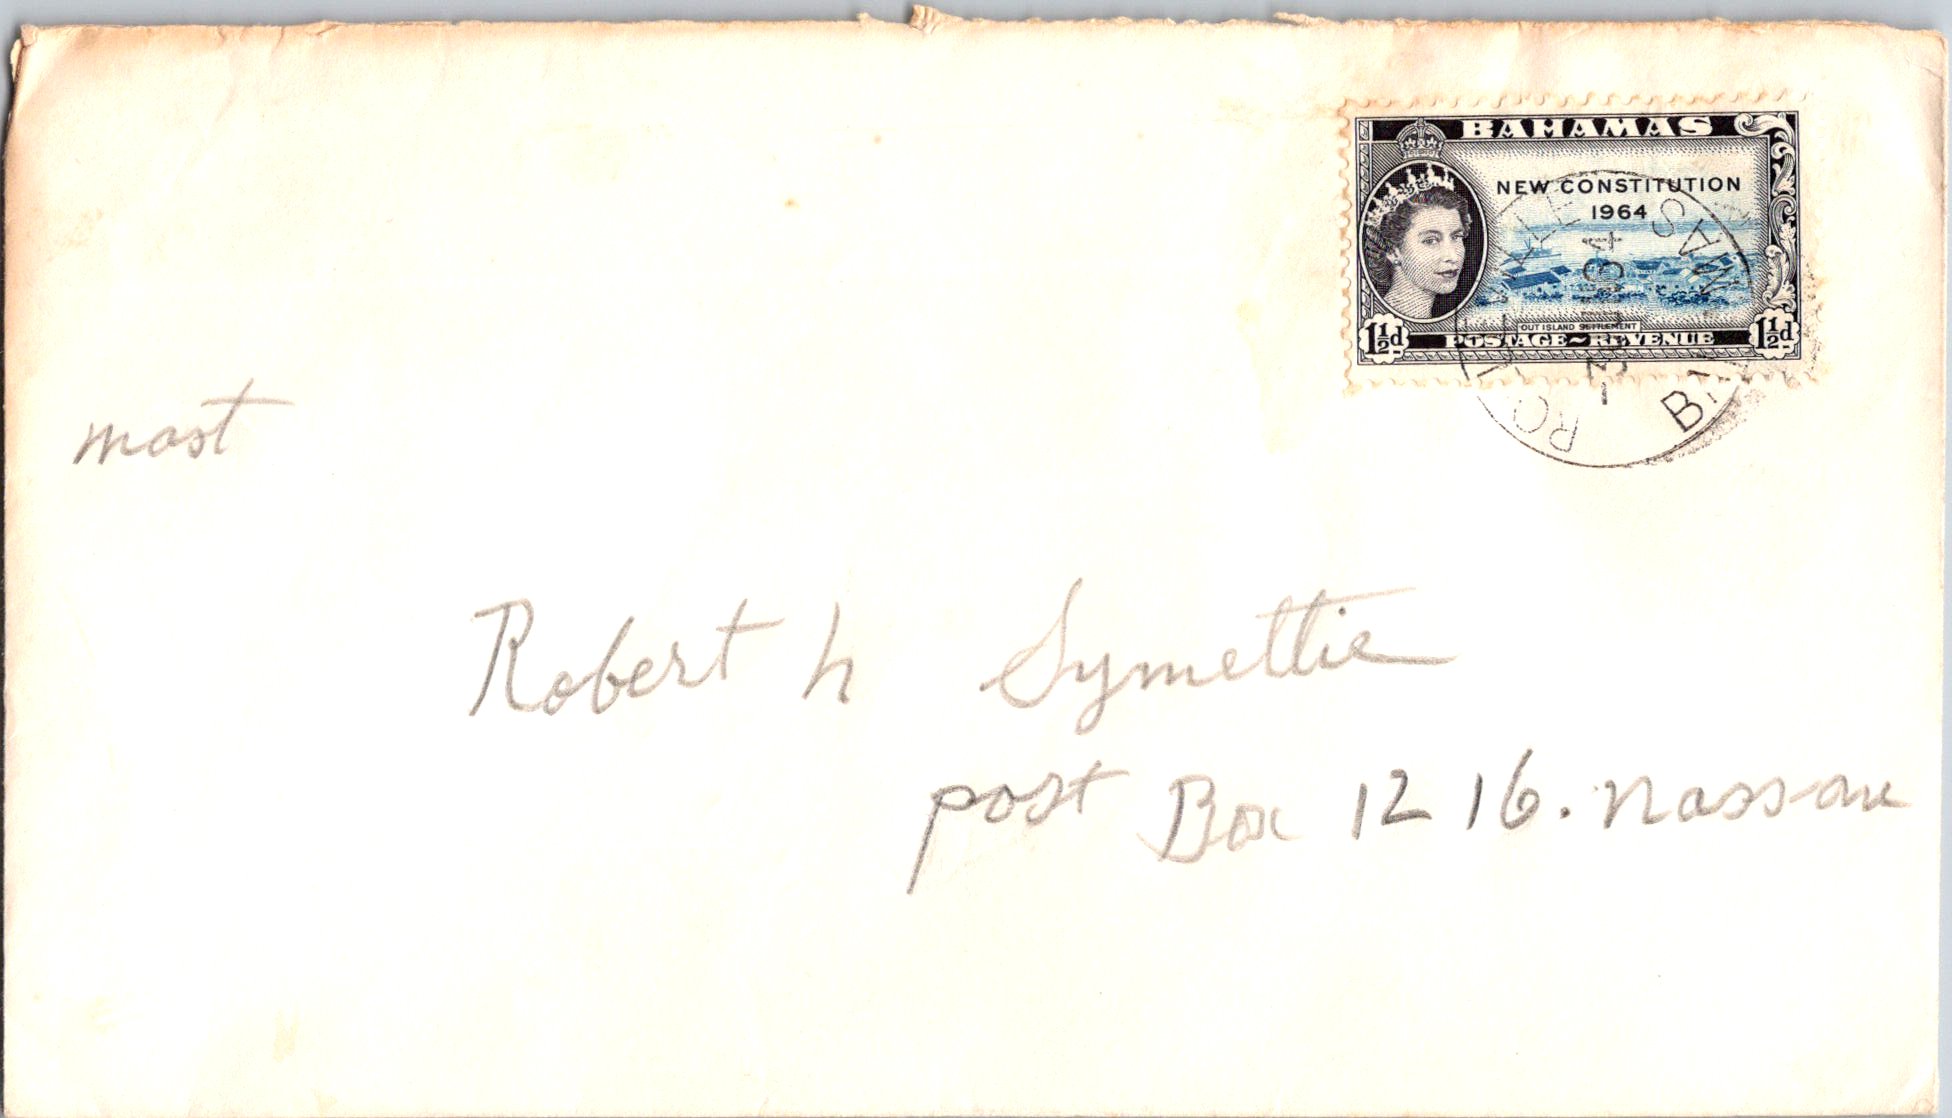 BAHAMAS
NEW CONSTITUTION
1964
OUT ISLAND SETTLEMENT
1½d POSTAGE~REVENUE 1½d
mast
Robert h Symettie
post Box 12 16. nassau